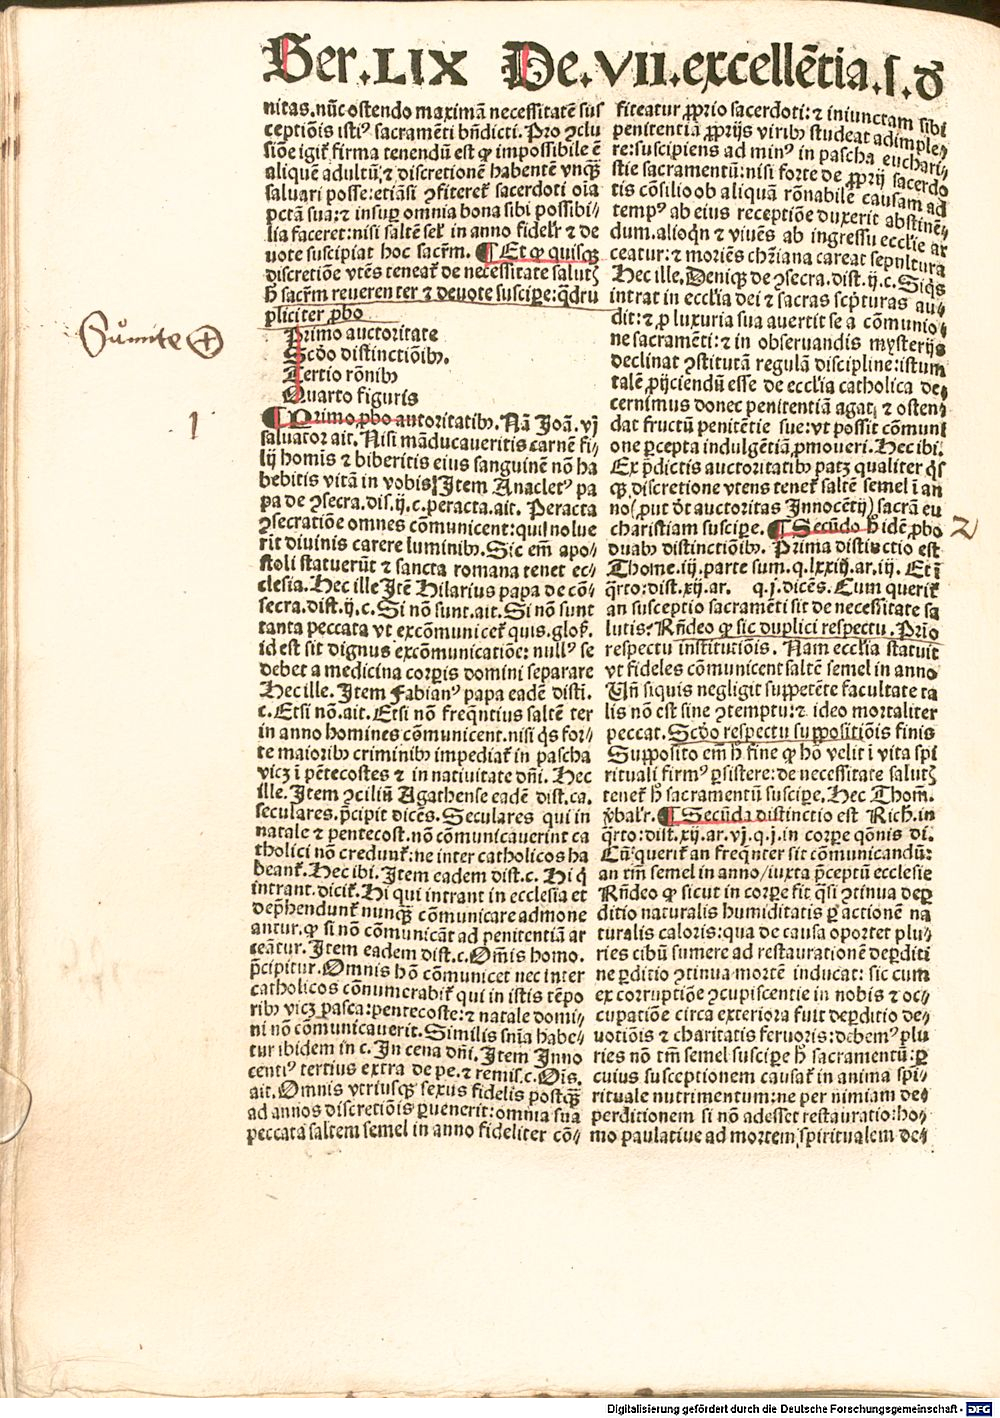 Ser.LIX De.VII.excellẽtia.s.ꝺ
nitas.nũc ostendo maximã necessitatẽ sus
ceptiõis istiꝰ sacramẽti bñdicti. Pro ꝯclu
siõe igit᷑ firma tenendũ est ꝙ impossibile ẽ
aliquẽ adultũ,⁊ discretionẽ habentẽ vnqꝫ̃
saluari posse:etiãsi ꝯfiteret᷑ sacerdoti oĩa
pctã sua:⁊ insuꝑ omnia bona sibi possibi⸗
lia faceret:nisi saltẽ sel᷑ in anno fidelr̃ ⁊ de
uote suscipiat hoc sacrm̃. ¶ Et ꝙ quisqꝫ
discretiõe vtẽs teneat᷑ de necessitate salutꝭ
h̃ sacrm̃ reuerenter ⁊ deuote susciꝑe:q̃dru
pliciter ꝓbo
Sũmite
Primo auctoritate
Scḋo distinctiõibꝫ.
Tertio rõnibꝫ
Quarto figuris
1
¶ Primo ꝓbo autoritatibꝫ. Nã Joã.vj
saluator ait. Nisi mãducaueritis carnẽ fi⸗
lij homĩs ⁊ biberitis eius sanguinẽ nõ ha
bebitis vitã in vobis. Jtem Anacletꝰ pa
pa de ꝯsecra.dis.ij.c.peracta.ait. Peracta
ꝯsecratiõe omnes cõmunicent:qui nolue
rit diuinis carere luminibꝫ. Sic em̃ apo⸗
stoli statuerũt ⁊ sancta romana tenet ec⸗
clesia. Hec ille Jtẽ Hilarius papa de cõ⸗
secra.dist.ij.c. Si nõ sunt.ait. Si nõ sunt
tanta peccata vt excõmunicet᷑ quis.glos̃.
id est sit dignus excõmunicatiõe: nullꝰ se
debet a medicina corꝑis domini separare
Hec ille. Jtem Fabianꝰ papa eadẽ disti.
c. Etsi nõ.ait. Etsi nõ freq̃ntius saltẽ ter
in anno homines cõmunicent.nisi q̃s for⸗
te maioribꝫ criminibꝫ impediat᷑ in pascha
vicꝫ ĩ pẽtecostes ⁊ in natiuitate dñi. Hec
ille. Jtem ꝯciliũ Agathense eadẽ dist.ca.
seculares.p̃cipit dicẽs. Seculares qui in
natale ⁊ pentecost.nõ cõmunicauerint ca
tholici non credunt᷑:ne inter catholicos ha
beant᷑. Hec ibi. Jtem eadem dist.c. Hi q̇
intrant.dicit᷑. Hi qui intrant in ecclesia et
dep̃hendunt᷑ nunqꝫ̃ cõmunicare admone
antur.ꝙ si nõ cõmunicãt ad penitentiã ar
ceãtur. Jtem eadem dist.c. Om̃is homo.
p̃cipitur. Omnis hõ cõmunicet nec inter
catholicos cõnumerabit᷑ qui in istis tẽpo
ribꝫ vicꝫ pasca:pentecoste:⁊ natale domi⸗
ni nõ cõmunicauerit. Similis snĩa habe⸗
tur ibidem in c. Jn cena dñi. Jtem Jnno
centiꝰ tertius extra de pe.⁊ remis.c. Oĩs.
ait. Omnis vtriusqꝫ sexus fidelis postqꝫ̃
ad annos discretiõis ꝑuenerit:omnia sua
peccata saltem semel in anno fideliter cõ⸗
fiteatur ꝓprio sacerdoti:⁊ iniunctam sibi
penitentiã ꝓprijs viribꝫ studeat adimple⸗
re:suscipiens ad minꝰ in pascha euchari⸗
stie sacramentũ:nisi forte de ꝓprij sacerdo
tis cõsilio ob aliquã rõnabilẽ causam ad
tempꝰ ab eius receptiõe duxerit abstinẽ⸗
dum.alioq̃n ⁊ viuẽs ab ingressu eccl̃ie ar
ceatur:⁊ moriẽs chr̃iana careat sepultura
Hec ille. Deniqꝫ de ꝯsecra.dist.ij.c. Siq̃s
intrat in eccl̃ia dei ⁊ sacras scp̃turas au⸗
dit:⁊ ꝓ luxuria sua auertit se a cõmunio⸗
ne sacramẽti:⁊ in obseruandis mysterijs
declinat ꝯstitutã regulã discipline:istum
talẽ ꝓijciendũ esse de eccl̃ia catholica de⸗
cernimus donec penitentiã agat,⁊ osten⸗
dat fructũ penitẽtie sue:vt possit cõmuni
one ꝑcepta indulgẽtiã ꝓmoueri. Hec ibi.
Ex p̃dictis auctoritatibꝫ patꝫ qualiter q̃s
qꝫ discretione vtens tenet᷑ saltẽ semel ĩ an
no(put dĩt auctoritas Jnnocẽtij) sacrã eu
charistiam susciꝑe. ¶ Secũdo h̃ idẽ ꝓbo
2
duabꝫ distinctiõibꝫ. Prima distinctio est
Thome.iij.parte sum.q.lxxiij.ar.iij. Et ĩ
q̃rto:dist.xij.ar. q.j.dicẽs. Cum querit᷑
an susceptio sacramẽti sit de necessitate sa
lutis: Rñdeo ꝙ sic duplici respectu. Prĩo
respectu institutiõis. Nam eccl̃ia statuit
vt fideles cõmunicent saltẽ semel in anno
Vñ siquis negligit suppetẽte facultate ta
lis nõ est sine ꝯtemptu:⁊ ideo mortaliter
peccat. Scḋo respectu suppositiõis finis
Supposito em̃ h̃ fine ꝙ hõ velit ĩ vita spi
rituali firmꝰ ꝑsistere:de necessitate salutꝭ
tenet᷑ h̃ sacramentũ susciꝑe. Hec Thom̃.
v̾balr̃. ¶ Secũda distinctio est Rich̃.in
q̃rto:dist.xij.ar.vj.q.j.in corꝑe q̃onis di.
Cũ querit᷑ an freq̃nter sit cõmunicandũ:
an tm̃ semel in anno/iuxta p̃ceptũ ecclesie
Rñdeo ꝙ sicut in corꝑe fit q̃si ꝯtinua deꝑ
ditio naturalis humiditatis ꝑ actionẽ na
turalis caloris:qua de causa oportet plu⸗
ries cibũ sumere ad restaurationẽ deꝑditi
ne ꝑditio ꝯtinua mortẽ inducat: sic cum
ex corruptiõe ꝯcupiscentie in nobis ⁊ oc⸗
cupatiõe circa exteriora fuit deꝑditio de⸗
uotiõis ⁊ charitatis feruoris:debemꝰ plu
ries nõ tm̃ semel susciꝑe h̃ sacramentũ:ꝑ
cuius susceptionem causat᷑ in anima spi⸗
rituale nutrimentum:ne per nimiam de⸗
perditionem si nõ adesset restauratio:ho⸗
mo paulatiue ad mortem spiritualem de⸗
Digitalisierung gefördert durch die Deutsche Forschungsgemeinschaft - DFG